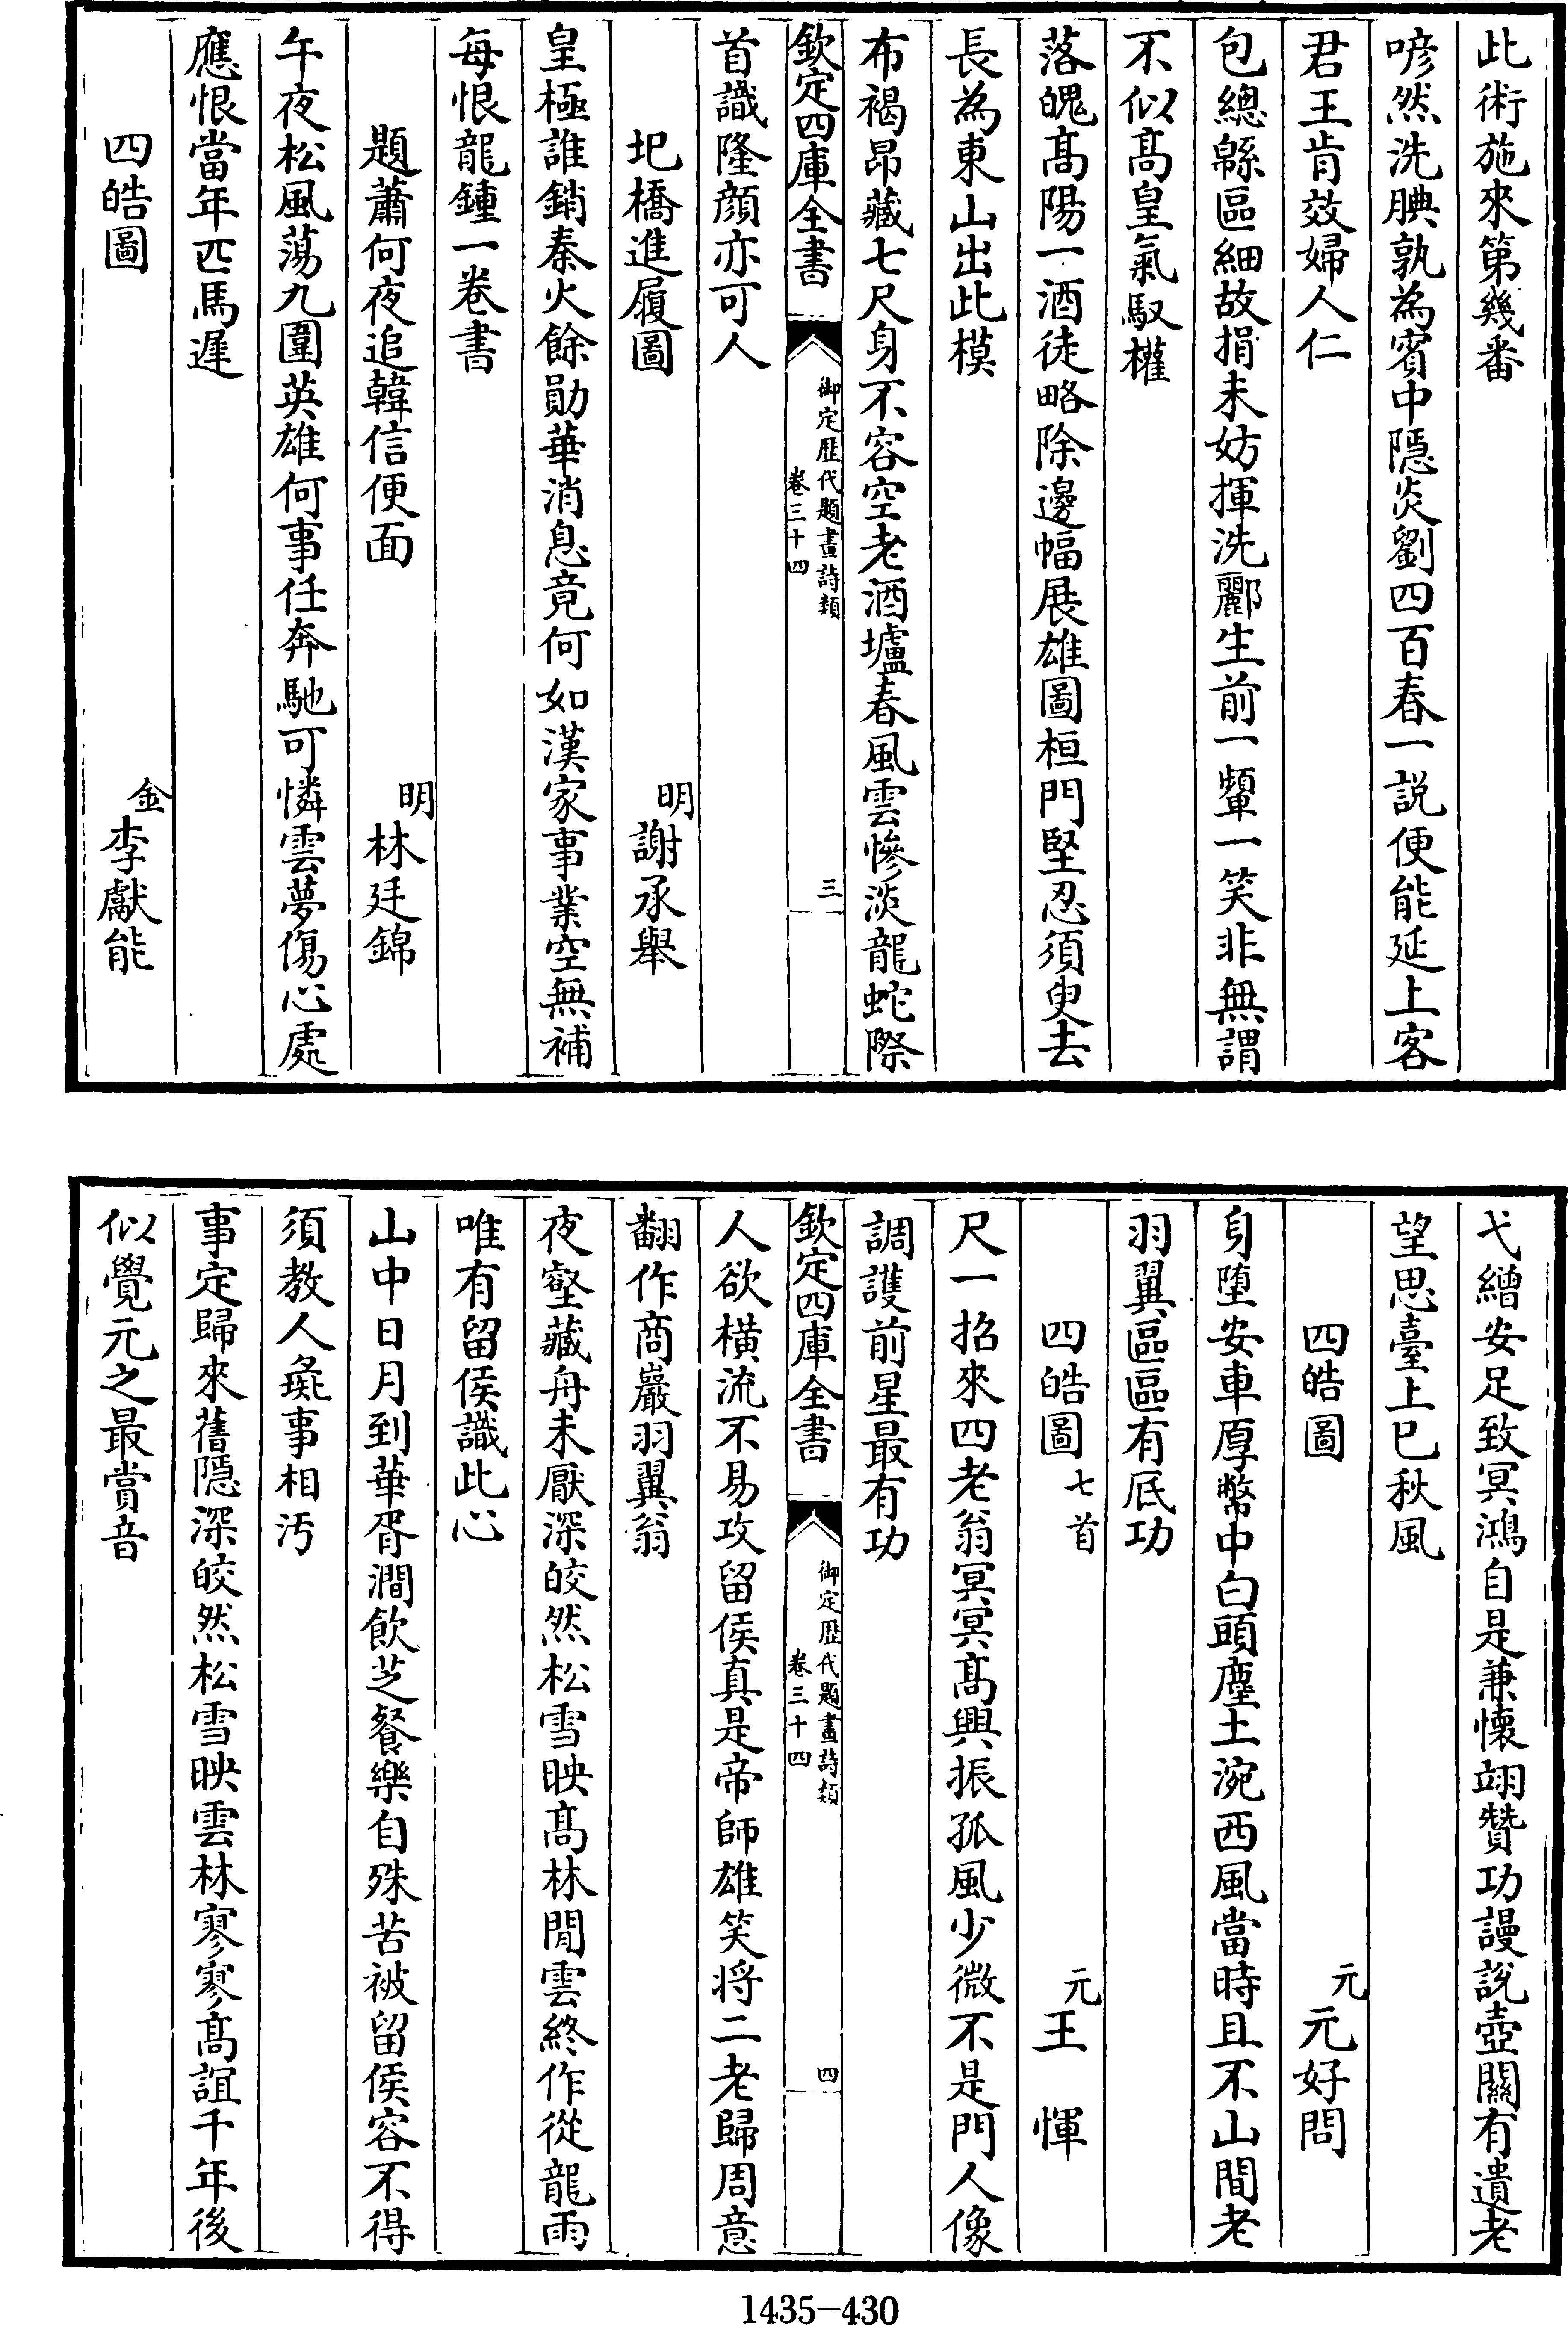 此術施來第幾番
喭然洗腆孰為賓中隠炎劉四百春一説便能延上客
君王肯效婦人仁
包總緜區細故捐未妨揮洗酈生前一顰一笑非無謂
不似髙皇氣馭權
落魄髙陽一酒徒略除邊幅展雄圖桓門堅忍須臾去
長為東山出此模
布褐昂藏七尺身不容空老酒壚春風雲慘淡龍蛇際
欽定四庫全書
御定歴代題畫詩類
卷三十四
三
首識隆顔亦可人
圯橋進履圖
明謝承舉
皇極誰銷秦火餘勛華消息竟何如漢家事業空無補
每恨龍鍾一卷書
題蕭何夜追韓信便面
明林廷錦
午夜松風蕩九圍英雄何事任奔馳可憐雲夢傷心處
應恨當年匹馬遲
四皓圖
金李獻能
弋繒安足致冥鴻自是兼懷翊贊功謾説壺關有遺老
望思臺上已秋風
四皓圖
元元好問
身墮安車厚幣中白頭塵土涴西風當時且不山間老
羽翼區區有底功
四皓圖七首
元王惲
尺一招來四老翁冥冥髙興振孤風少微不是門人像
調護前星最有功
欽定四庫全書
御定歴代題畫詩類
卷三十四
四
人欲横流不易攻留侯真是帝師雄笑将二老歸周意
翻作商巖羽翼翁
夜壑藏舟未厭深皎然松雪映髙林閒雲終作從龍雨
唯有留侯識此心
山中日月到華胥澗飲芝餐樂自殊苦被留侯容不得
須教人彘事相汚
事定歸來舊隠深皎然松雪映雲林寥寥髙誼千年後
似覺元之最賞音
1435-430